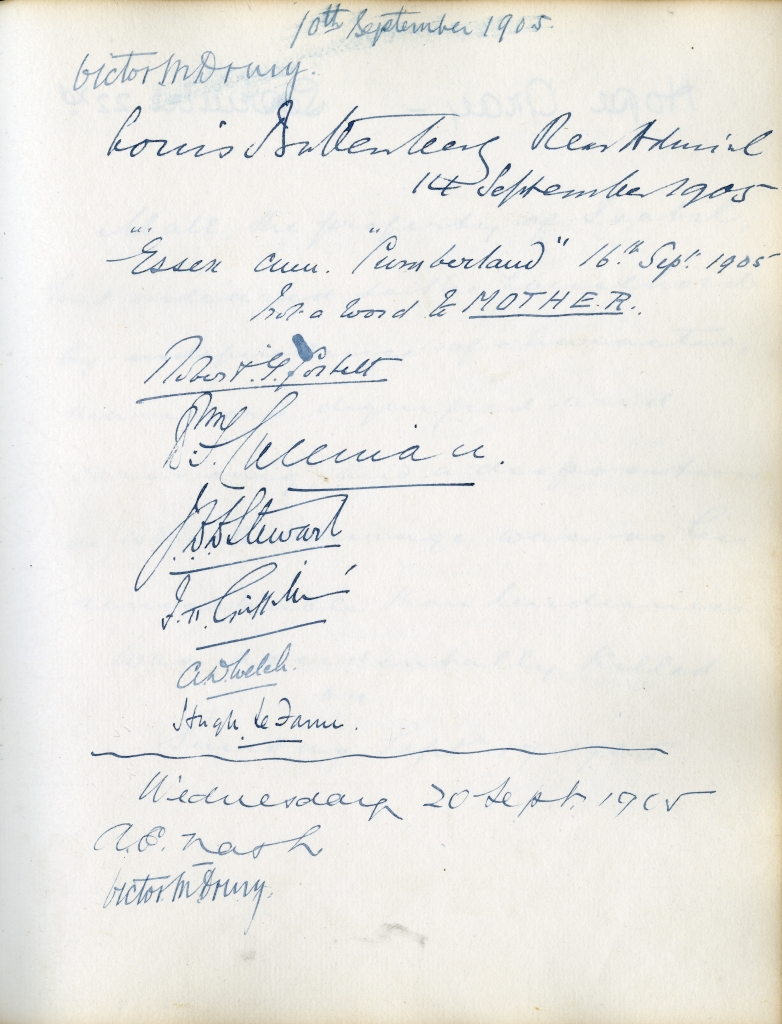 10th September 1905.
Victor M Drury.
Louis Battenberg Rear Admiral
14 September 1905
"Essex cum. "Cumberland" 16th Sept. 1905
Not a word to MOTHER.
Robert G.
J B D Stewart
A D Welch.
Hugh Le Fanu.
Wednesday 20 Sept. 1905
A. E. Nash
Victor M Drury.